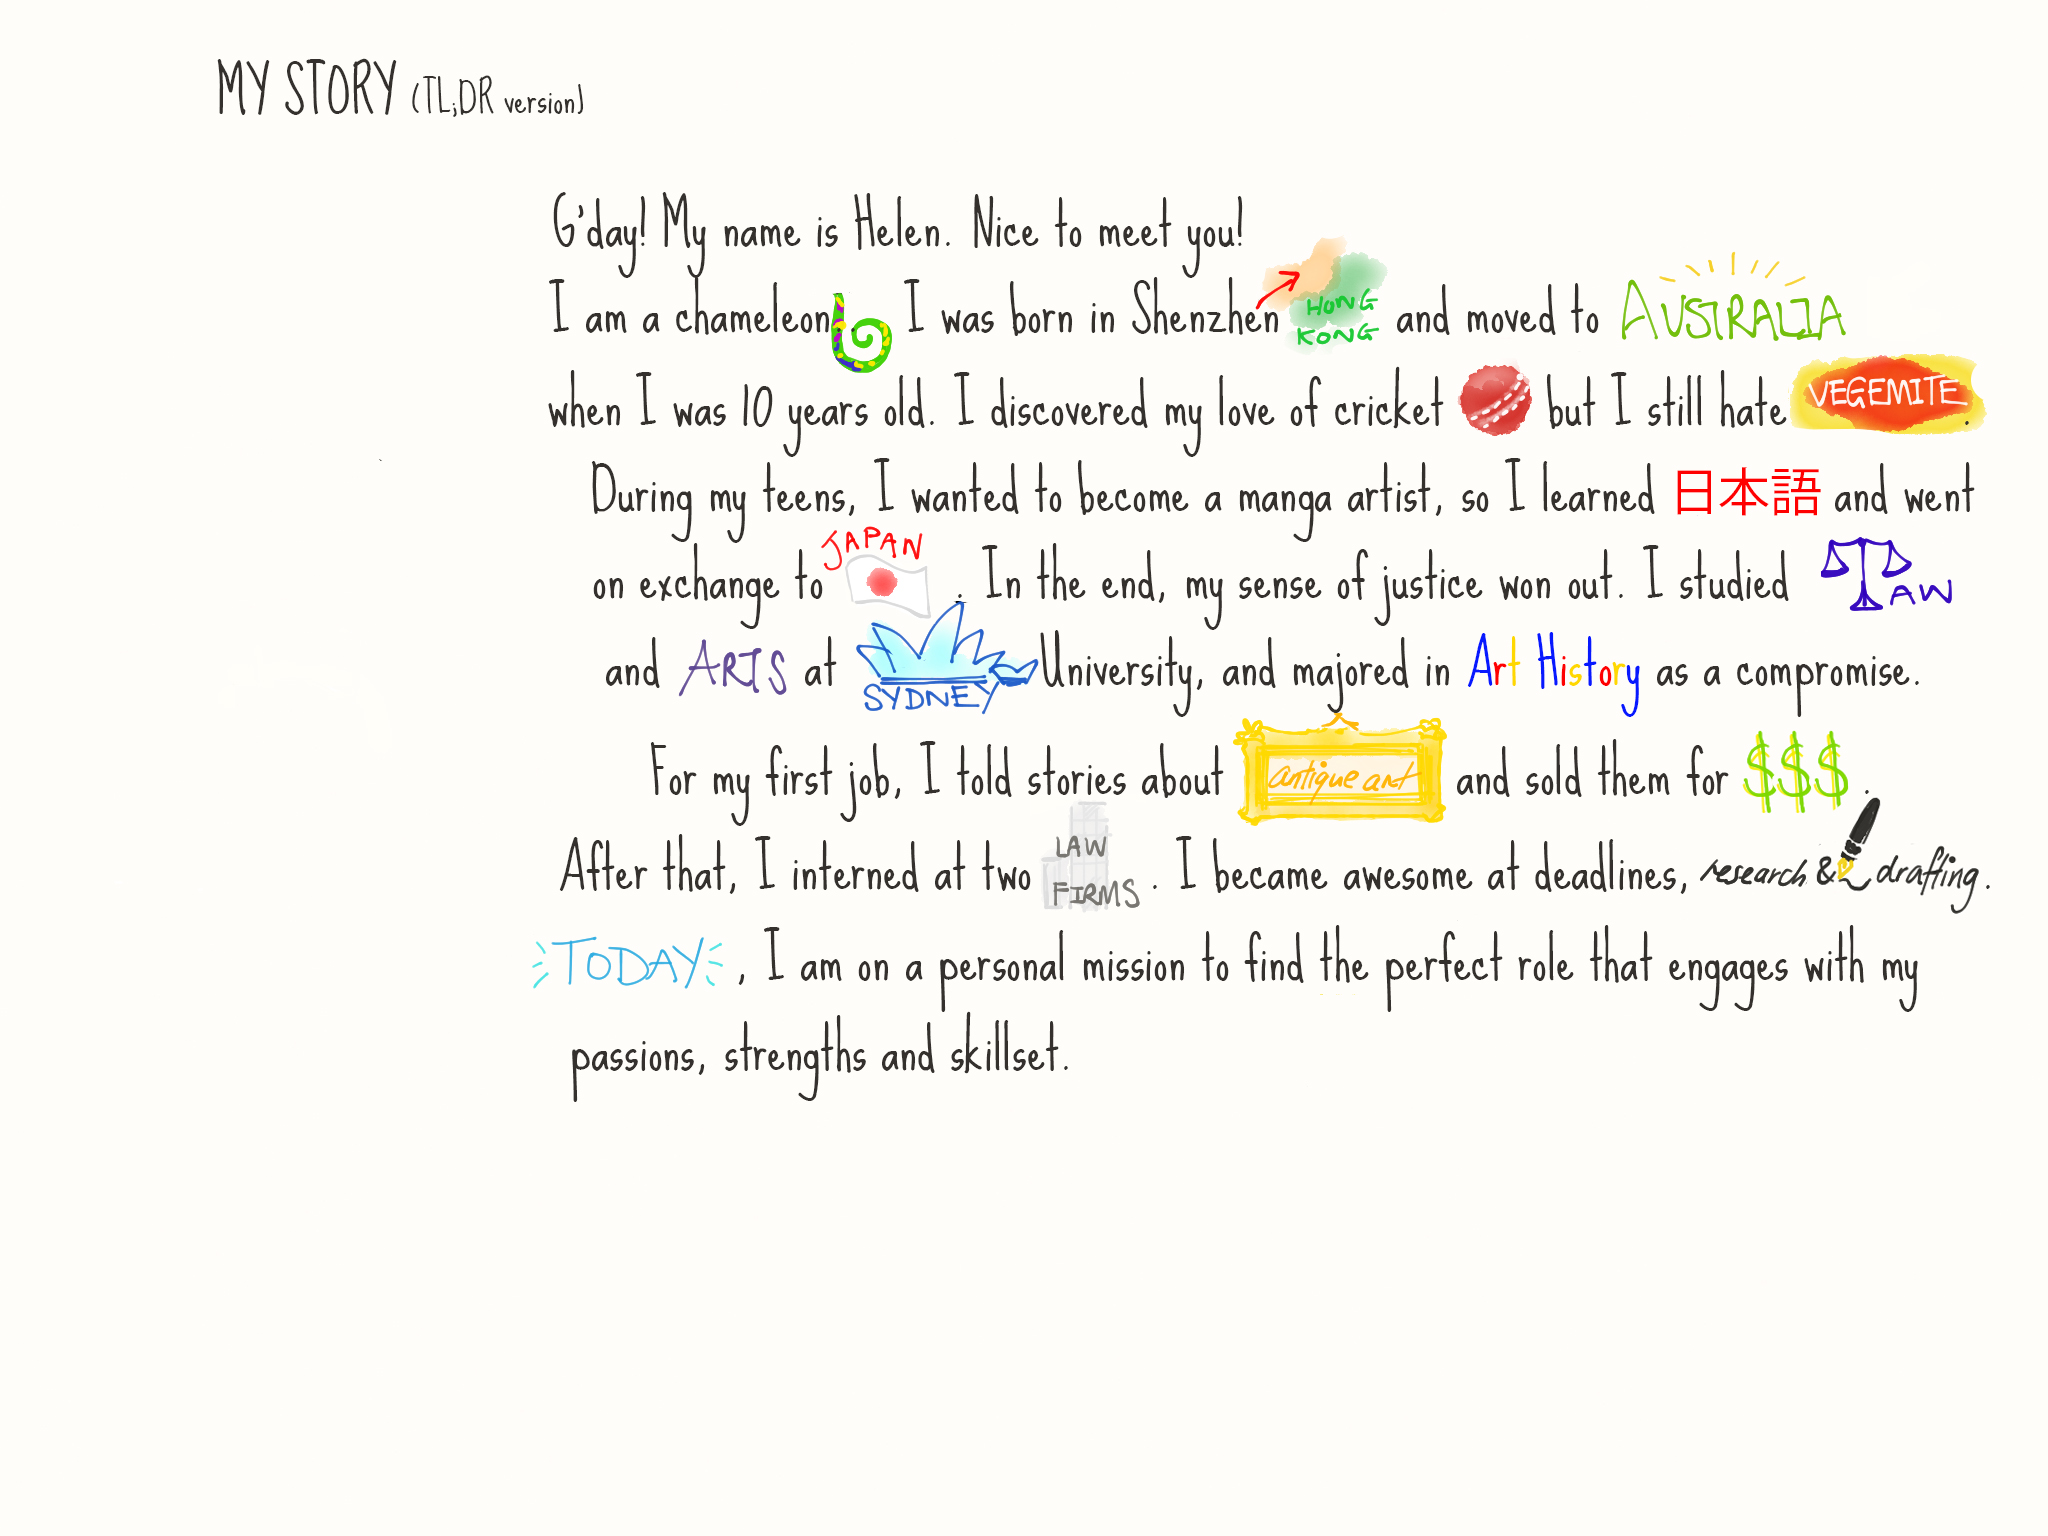 MY STORY (TL;DR version)
G'day! My name is Helen. Nice to meet you!
I am a chameleon. I was born in Shenzhen HONG KONG and moved to AUSTRALIA
when I was 10 years old. I discovered my love of cricket but I still hate VEGEMITE.
During my teens, I wanted to become a manga artist, so I learned 日本語 and went
on exchange to JAPAN. In the end, my sense of justice won out. I studied LAW
and ARTS at SYDNEY University, and majored in Art History as a compromise.
For my first job, I told stories about antique art and sold them for $$$.
After that, I interned at two LAW FIRMS. I became awesome at deadlines, research & drafting.
TODAY, I am on a personal mission to find the perfect role that engages with my
passions, strengths and skillset.